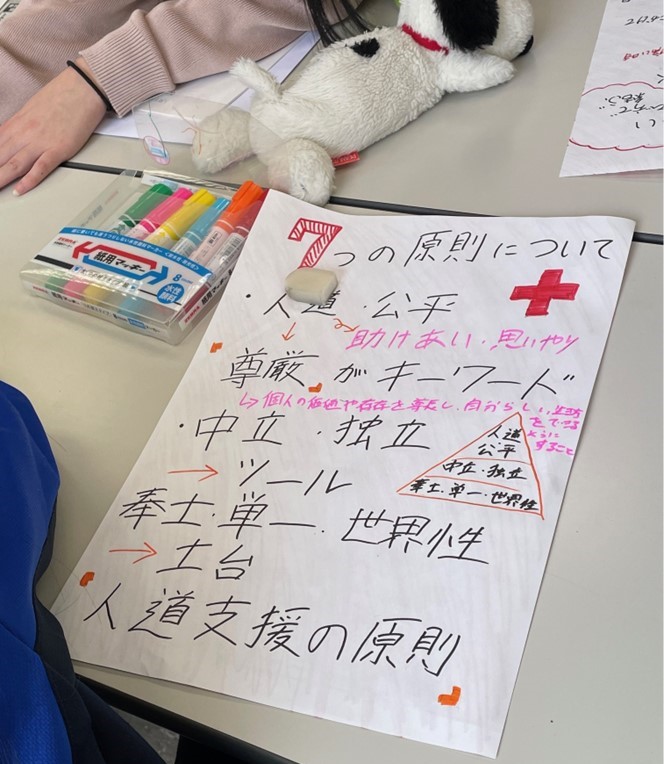 7つの原則について
・人道・公平
助けあい・思いやり
「尊厳」がキーワード
↳個人の価値や存在を尊重し、自分らしい生活
をできる
ように
すること
・中立・独立
→ツール
人道
公平
中立・独立
奉士・単一・世界性
奉士・単一・世界性
→土台
「人道支援の原則」
紙用マッキー
8
水性
顔料